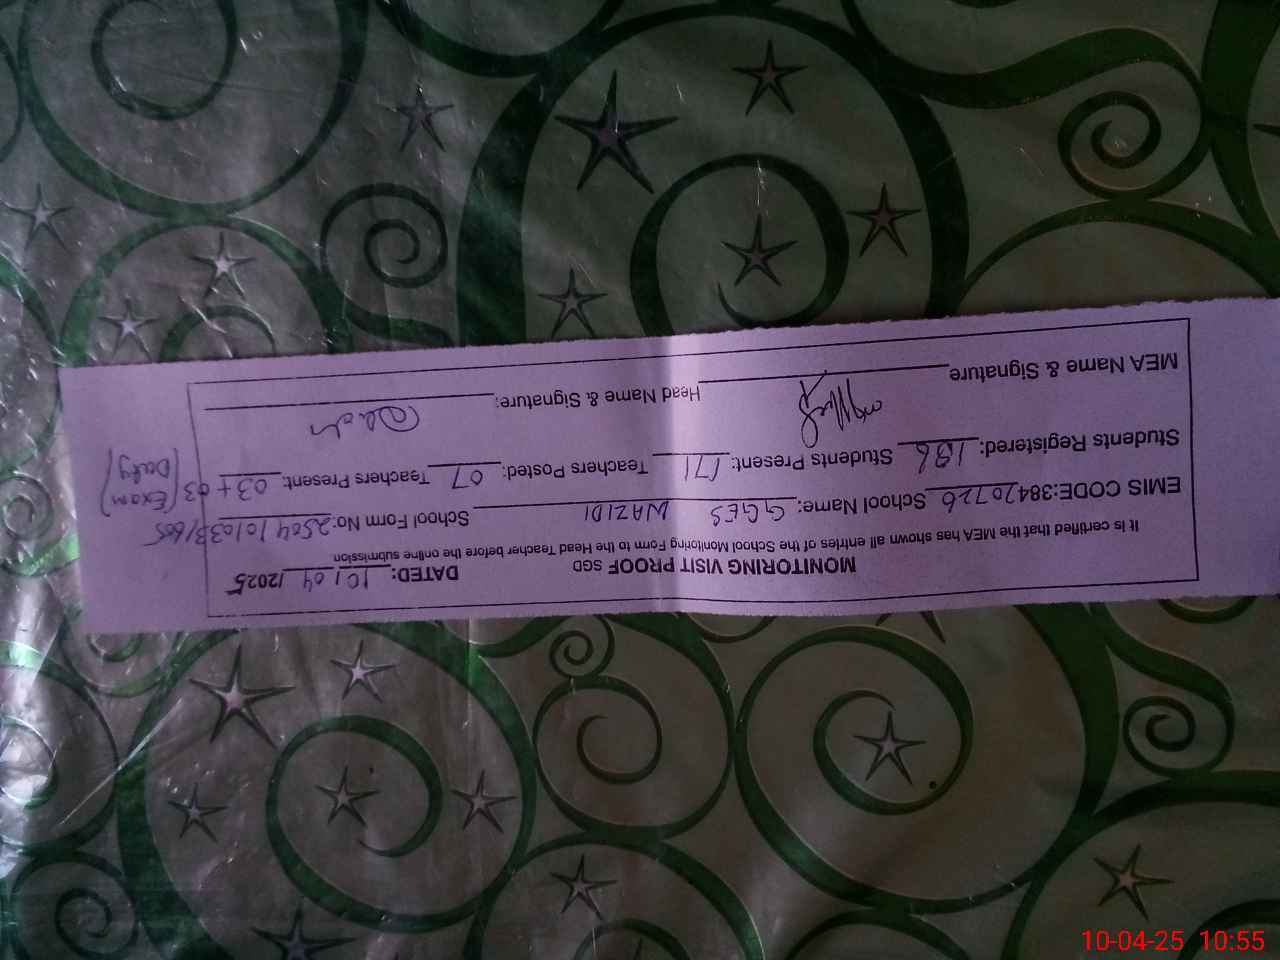 MONITORING VISIT PROOF SGD DATED: 10/04/2025
It is certified that the MEA has shown all entries of the School Monitoring Form to the Head Teacher before the online submission
EMIS CODE:38420726 School Name: GGES WAZIDI School Form No:
Students Registered: 186 Students Present: 171 Teachers Posted: 07 Teachers Present: 03+03 (Exam Duty)
MEA Name & Signature Head Name & Signature:
10-04-25 10:55